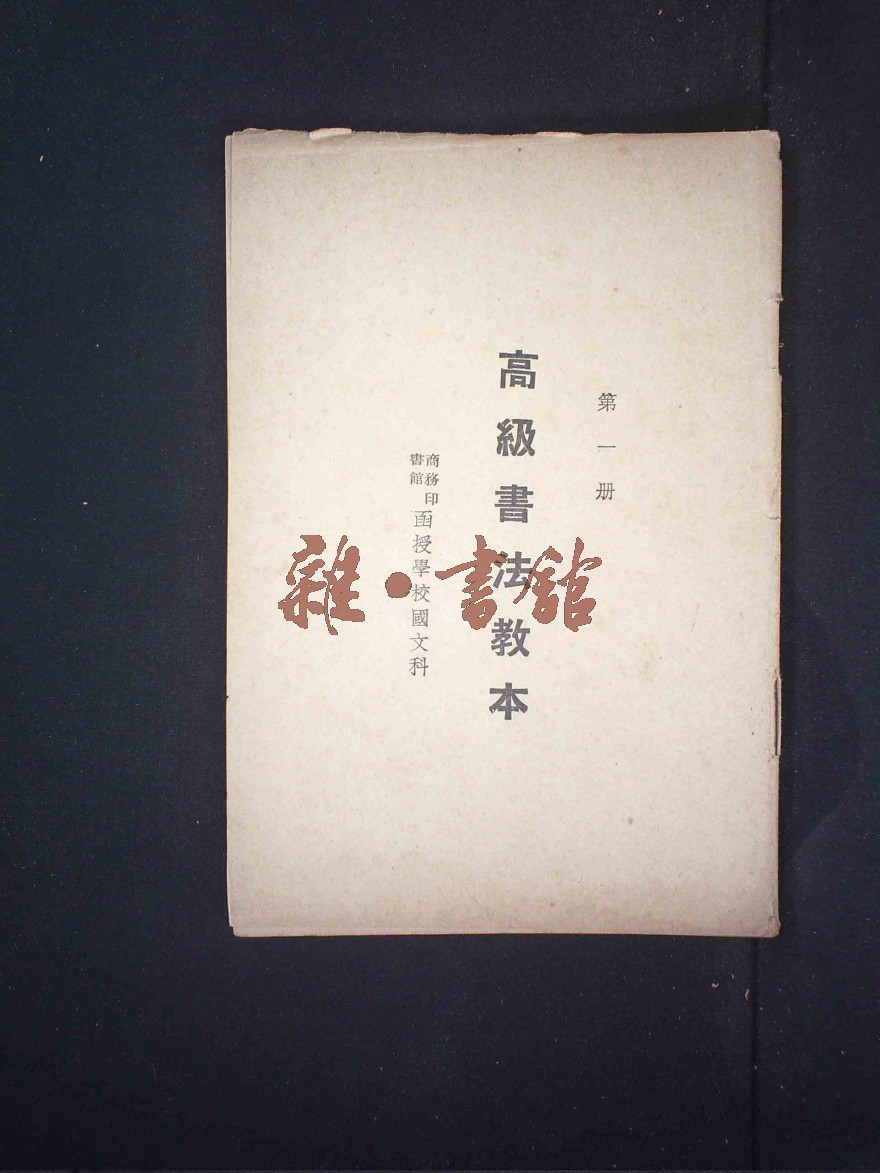 第一册
高級書法教本
商務印書館函授學校國文科
雜·書館